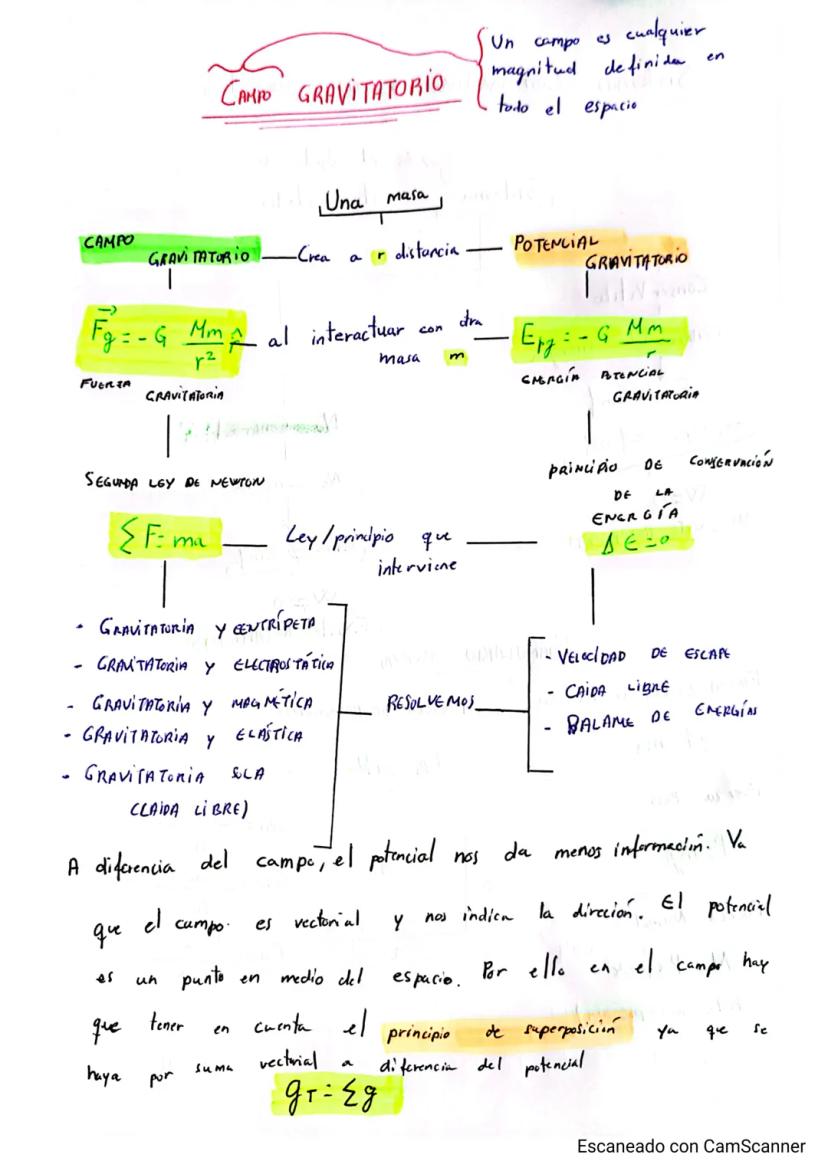 CAMPO GRAVITATORIO
Un campo es cualquier
magnitud definida en
todo el espacio
Una masa
CAMPO
GRAVITATORIO
Crea a r distancia
POTENCIAL
GRAVITATORIO
Fg = - G Mm/r² r̂
al interactuar con otra
masa m
Epg = - G Mm/r
FUERZA
GRAVITATORIA
ENERGÍA POTENCIAL
GRAVITATORIA
SEGUNDA LEY DE NEWTON
PRINCIPIO DE CONSERVACIÓN
DE LA
ENERGÍA
ΣF = ma
Ley/principio que
interviene
ΔE = 0
- GRAVITATORIA Y CENTRÍPETA
- GRAVITATORIA Y ELECTROSTÁTICA
- GRAVITATORIA Y MAGNÉTICA
- GRAVITATORIA Y ELÁSTICA
- GRAVITATORIA SOLA
(CAIDA LIBRE)
RESOLVEMOS
- VELOCIDAD DE ESCAPE
- CAIDA LIBRE
- BALANCE DE ENERGÍAS
A diferencia del campo, el potencial nos da menos información. Ya
que el campo es vectorial y nos indica la direción. El potencial
es un punto en medio del espacio. Por ello en el campo hay
que tener en cuenta el principio de superposición ya que se
haya por suma vectorial a diferencia del potencial
gT = Σg
Escaneado con CamScanner